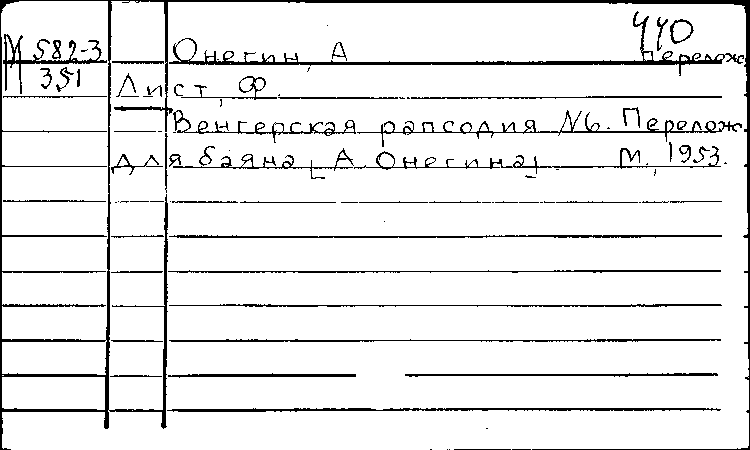 440
М 582-3 Онегин, А перелож.
351 Лист, Ф.
Венгерская рапсодия №6. Перелож.
для баяна [А. Онегина] М., 1953.